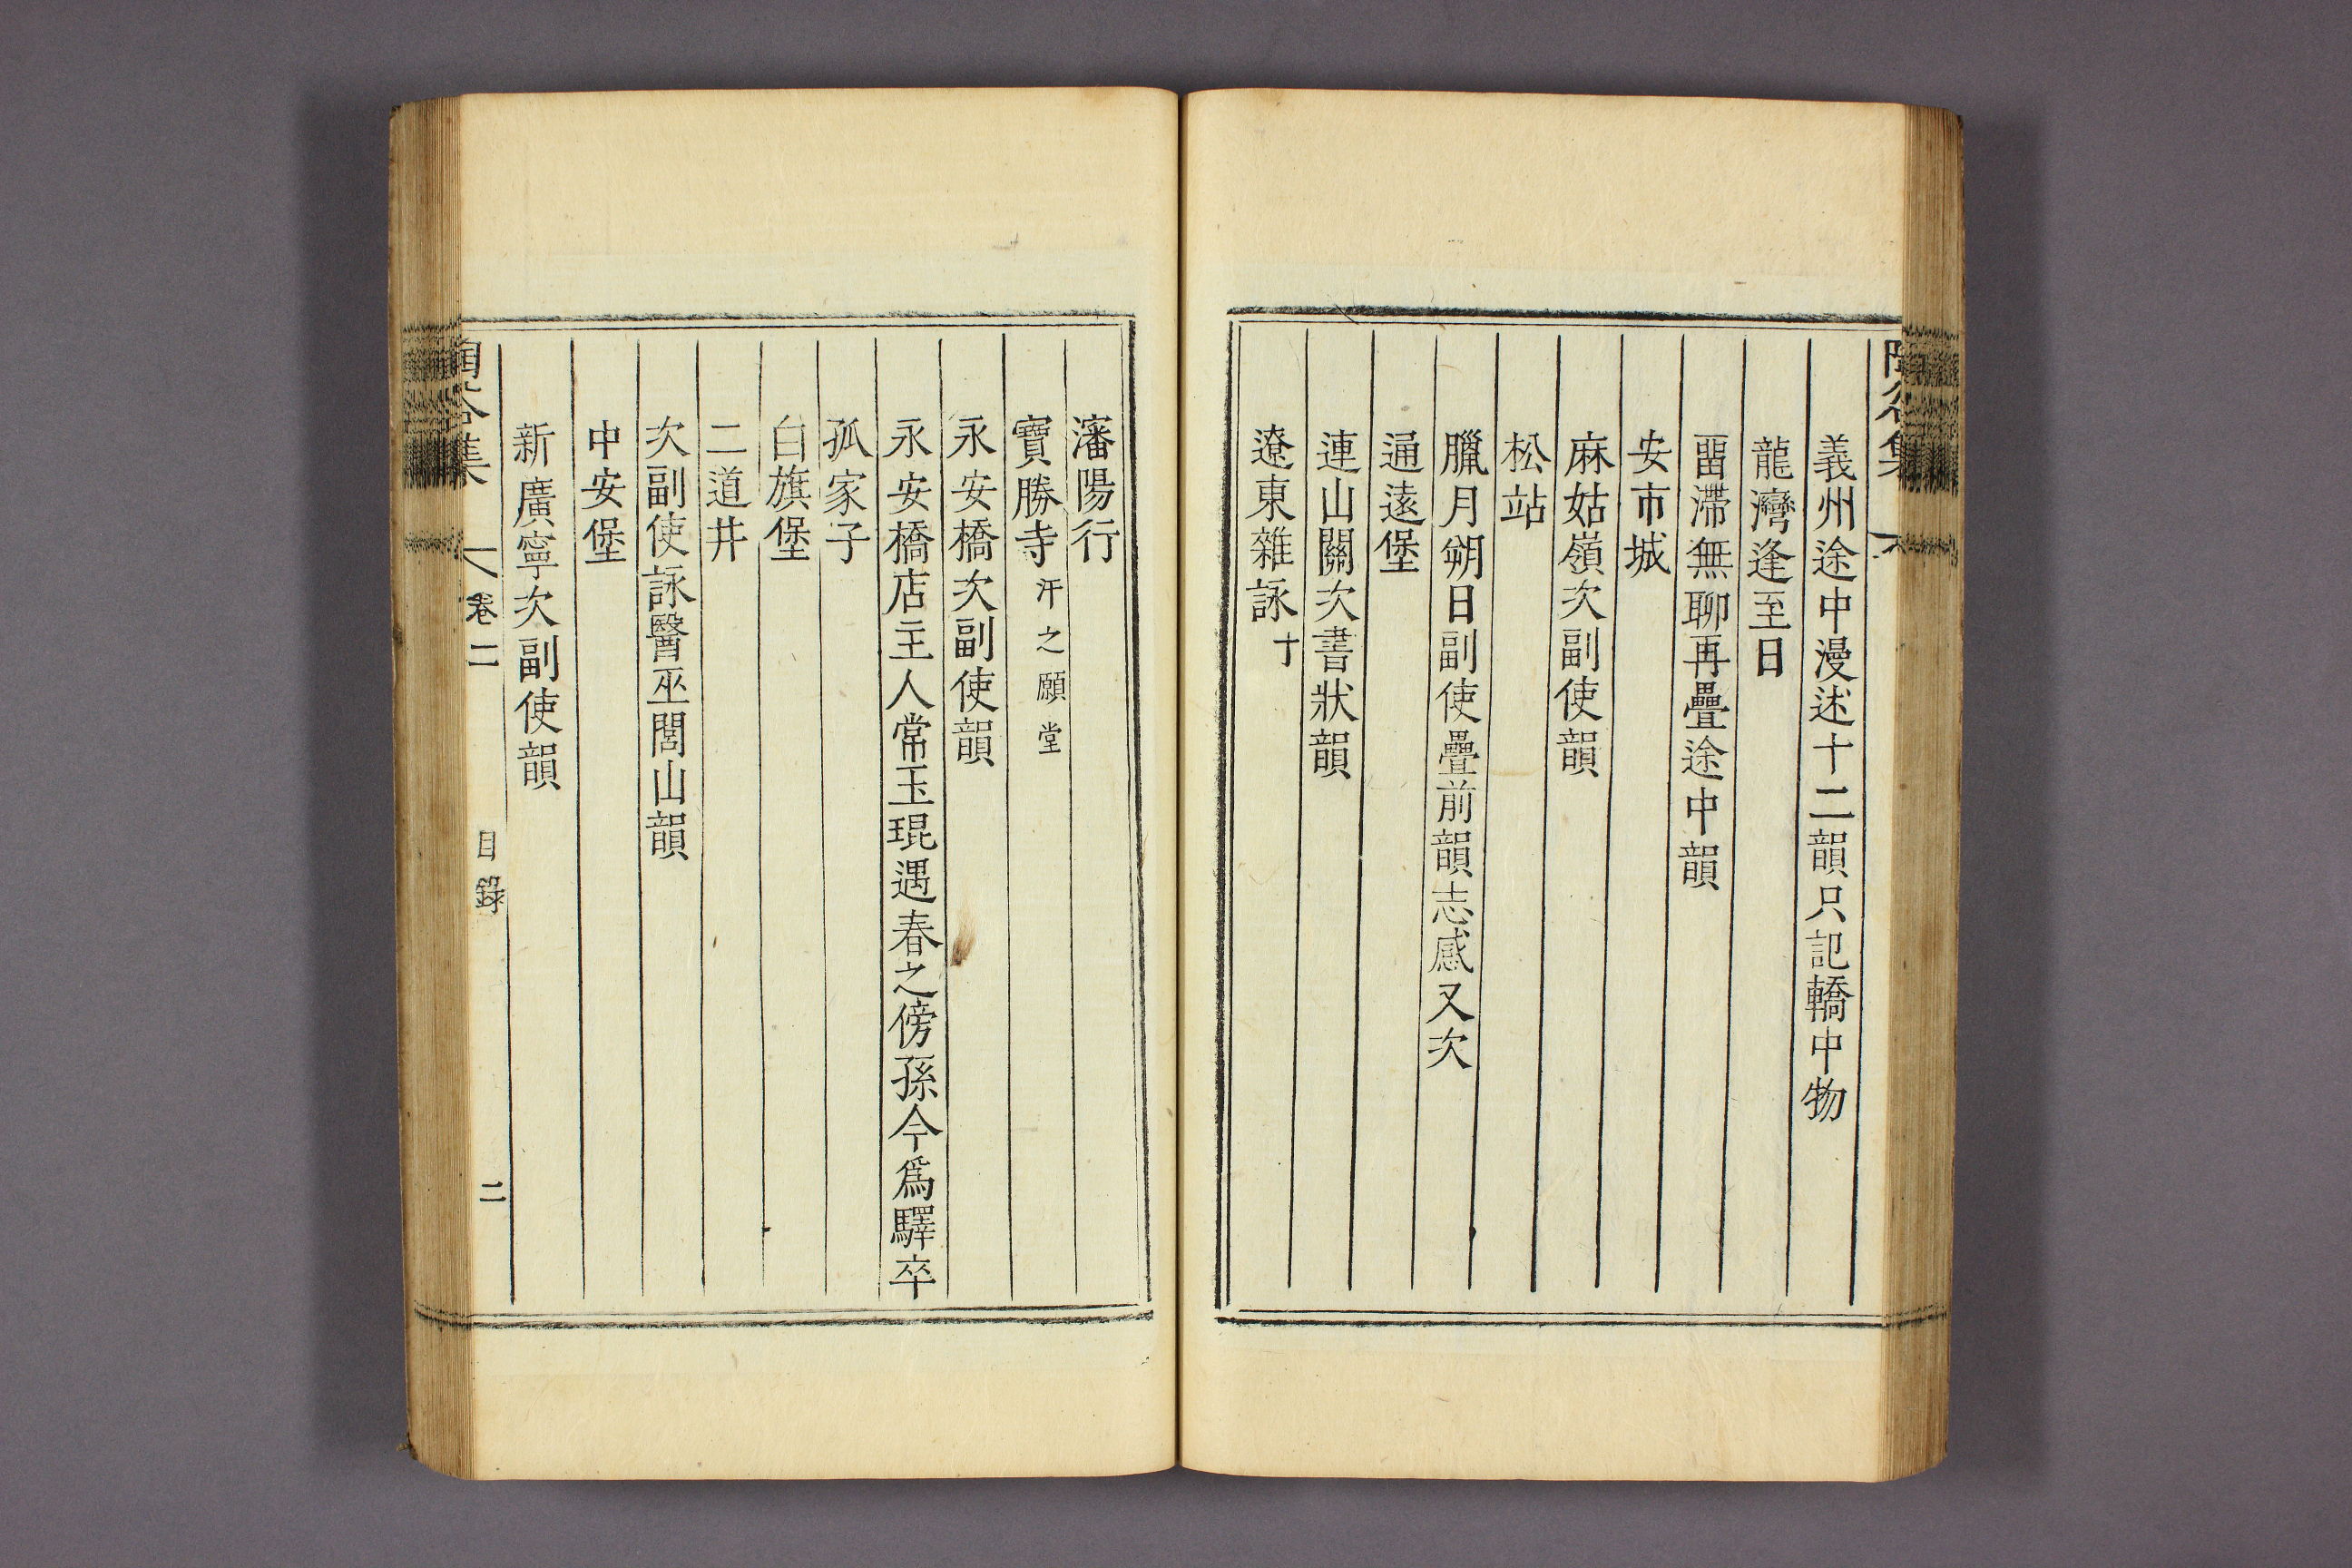 義州途中漫述十二韻只記轎中物
龍灣逢至日
畱滯無聊再疊途中韻
安市城
麻姑嶺次副使韻
松站
臘月朔日副使疊前韻志感又次
通遠堡
連山關次書狀韻
遼東雜詠十
瀋陽行
寶勝寺汗之願堂
永安橋次副使韻
永安橋店主人常玉琨遇春之傍孫今爲驛卒
孤家子
白旗堡
二道井
次副使詠醫巫閭山韻
中安堡
新廣寧次副使韻
卷二
目錄
二